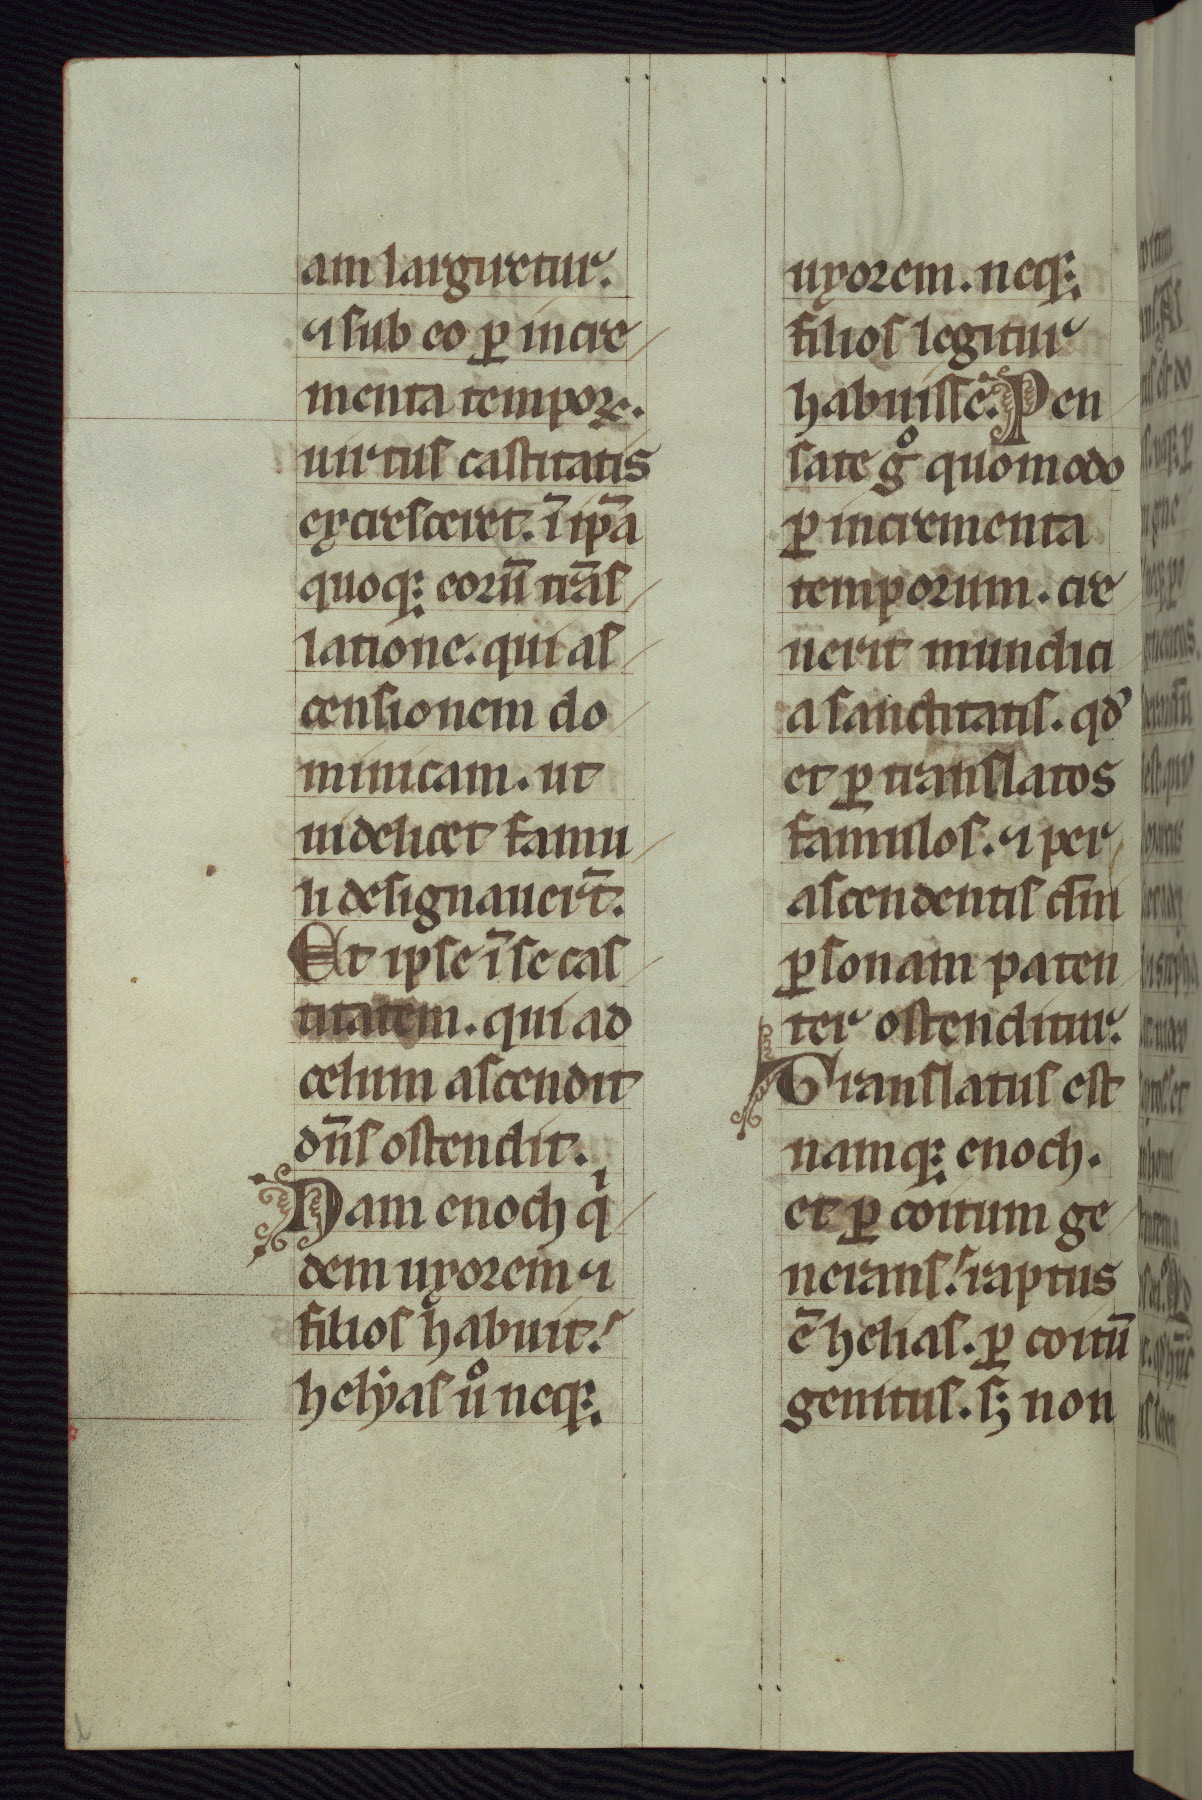 am largiretur.
⁊ sub eo ꝑ incre
menta tempoꝝ.
uirtus castitatis
excresceret. ī ip̄a
quoqꝫ eorū trās
latione. qui as
censionem do
minicam. ut
uidelicet famu
li designauer̄t.
Et ipse ī se cas
titatem. qui ad
celum ascendit
dn̄s ostendit.
Nam enoch qͥ
dem uxorem ⁊
filios habuit.
helẏas uͦ neqꝫ
uxorem. neqꝫ
filios legitur
habuisse. Pen
sate gͦ quomodo
ꝑ incrementa
temporum. cre
uerit mundici
a sanctitatis. qd̕
et ꝑ translatos
famulos. ⁊ per
ascendentis dn̄i
ꝑsonam paten
ter ostenditur.
Translatus est
namqꝫ enoch.
et ꝑ coitum ge
nerans. raptus
ē helias. ꝑ coitū
genitus. sꝫ non